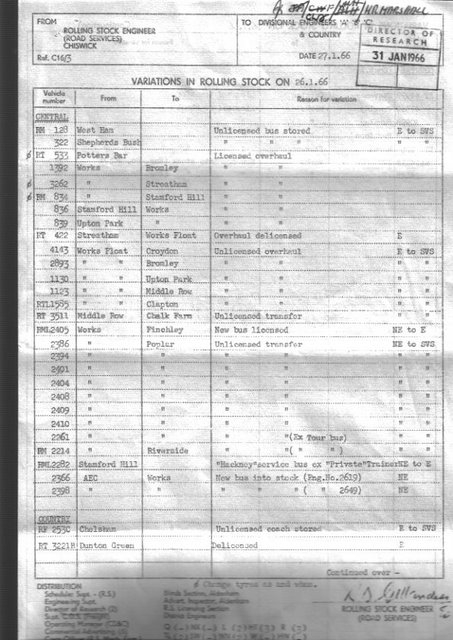 FROM
ROLLING STOCK ENGINEER
(ROAD SERVICES)
CHISWICK
Ref. C16/3
TO DIVISIONAL ENGINEERS 'A' 'B' 'C'
& COUNTRY
DATE 27.1.66
DIRECTOR OF
RESEARCH
31 JAN 1966
VARIATIONS IN ROLLING STOCK ON 26.1.66
Vehicle number From To Reason for variation
CENTRAL
RM 128 West Ham Unlicensed bus stored E to SVS
322 Shepherds Bush " " " " " "
ø RT 533 Potters Bar Licensed overhaul
1392 Works Bromley " "
ø 3262 " Streatham " "
ø RM 834 " Stamford Hill " "
836 Stamford Hill Works " "
839 Upton Park " " "
RT 422 Streatham Works Float Overhaul delicensed E
4143 Works Float Croydon Unlicensed overhaul E to SVS
2893 " " Bromley " " " "
1130 " " Upton Park " " " "
1123 " " Middle Row " " " "
RTL1585 " " Clapton " " " "
RT 3511 Middle Row Chalk Farm Unlicensed transfer " "
RML2405 Works Finchley New bus licensed NE to E
2386 " Poplar Unlicensed transfer NE to SVS
2394 " " " " " "
2401 " " " " " "
2404 " " " " " "
2408 " " " " " "
2409 " " " " " "
2410 " " " " " "
2261 " " " "(Ex Tour bus) " "
RM 2214 " Riverside " "( " " ) " "
RML2282 Stamford Hill "Hackney"service bus ex "Private"Trainer NE to E
2366 AEC Works New bus into stock (Eng.No.2619) NE
2398 " " " " " " ( " 2649) NE
COUNTRY
RF 2530 Chelsham Unlicensed coach stored E to SVS
RT 3221R Dunton Green Delicensed E
Continued over -
ø Change tyres as and when.
DISTRIBUTION
Schedule: Supt. - (R.S.)
Engineering Supt.
Director of Research (2)
Operating Manager (CB&C)
Commercial Advertising
Blinds Section, Aldenham
Advert. Inspector, Aldenham
R.S. Licensing Section
District Engineers
ROLLING STOCK ENGINEER
(ROAD SERVICES)